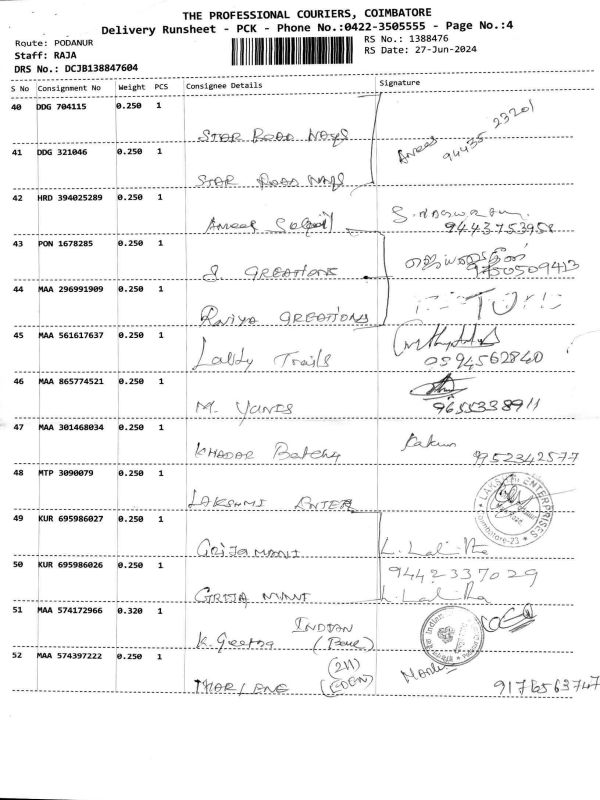 THE PROFESSIONAL COURIERS, COIMBATORE
Delivery Runsheet - PCK - Phone No.:0422-3505555 - Page No.:4
Route: PODANUR
RS No.: 1388476
Staff: RAJA
RS Date: 27-Jun-2024
DRS No.: DCJB138847604
S No Consignment No Weight PCS Consignee Details Signature
40 DDG 704115 0.250 1
STAR ROAD WAYS
94435 23201
41 DDG 321046 0.250 1
STAR ROAD WAYS
42 HRD 394025289 0.250 1
9443753958
43 PON 1678285 0.250 1
S CREATIONS
9750509413
44 MAA 296991909 0.250 1
CREATIONS
45 MAA 561617637 0.250 1
Trails
46 MAA 865774521 0.250 1
M. YANIS
9655338911
47 MAA 301468034 0.250 1
KHADAR
9952342577
48 MTP 3090079 0.250 1
LAKSHMI ENTER
LAKSHMI ENTERPRISES
Coimbatore-23
49 KUR 695986027 0.250 1
GRIJA MANI
L. Lalitha
50 KUR 695986026 0.250 1
9442337029
GRIJA MANI
L. Lalitha
51 MAA 574172966 0.320 1
INDIAN
K. Geetha
52 MAA 574397222 0.250 1
(211)
(EDEN)
9176563747